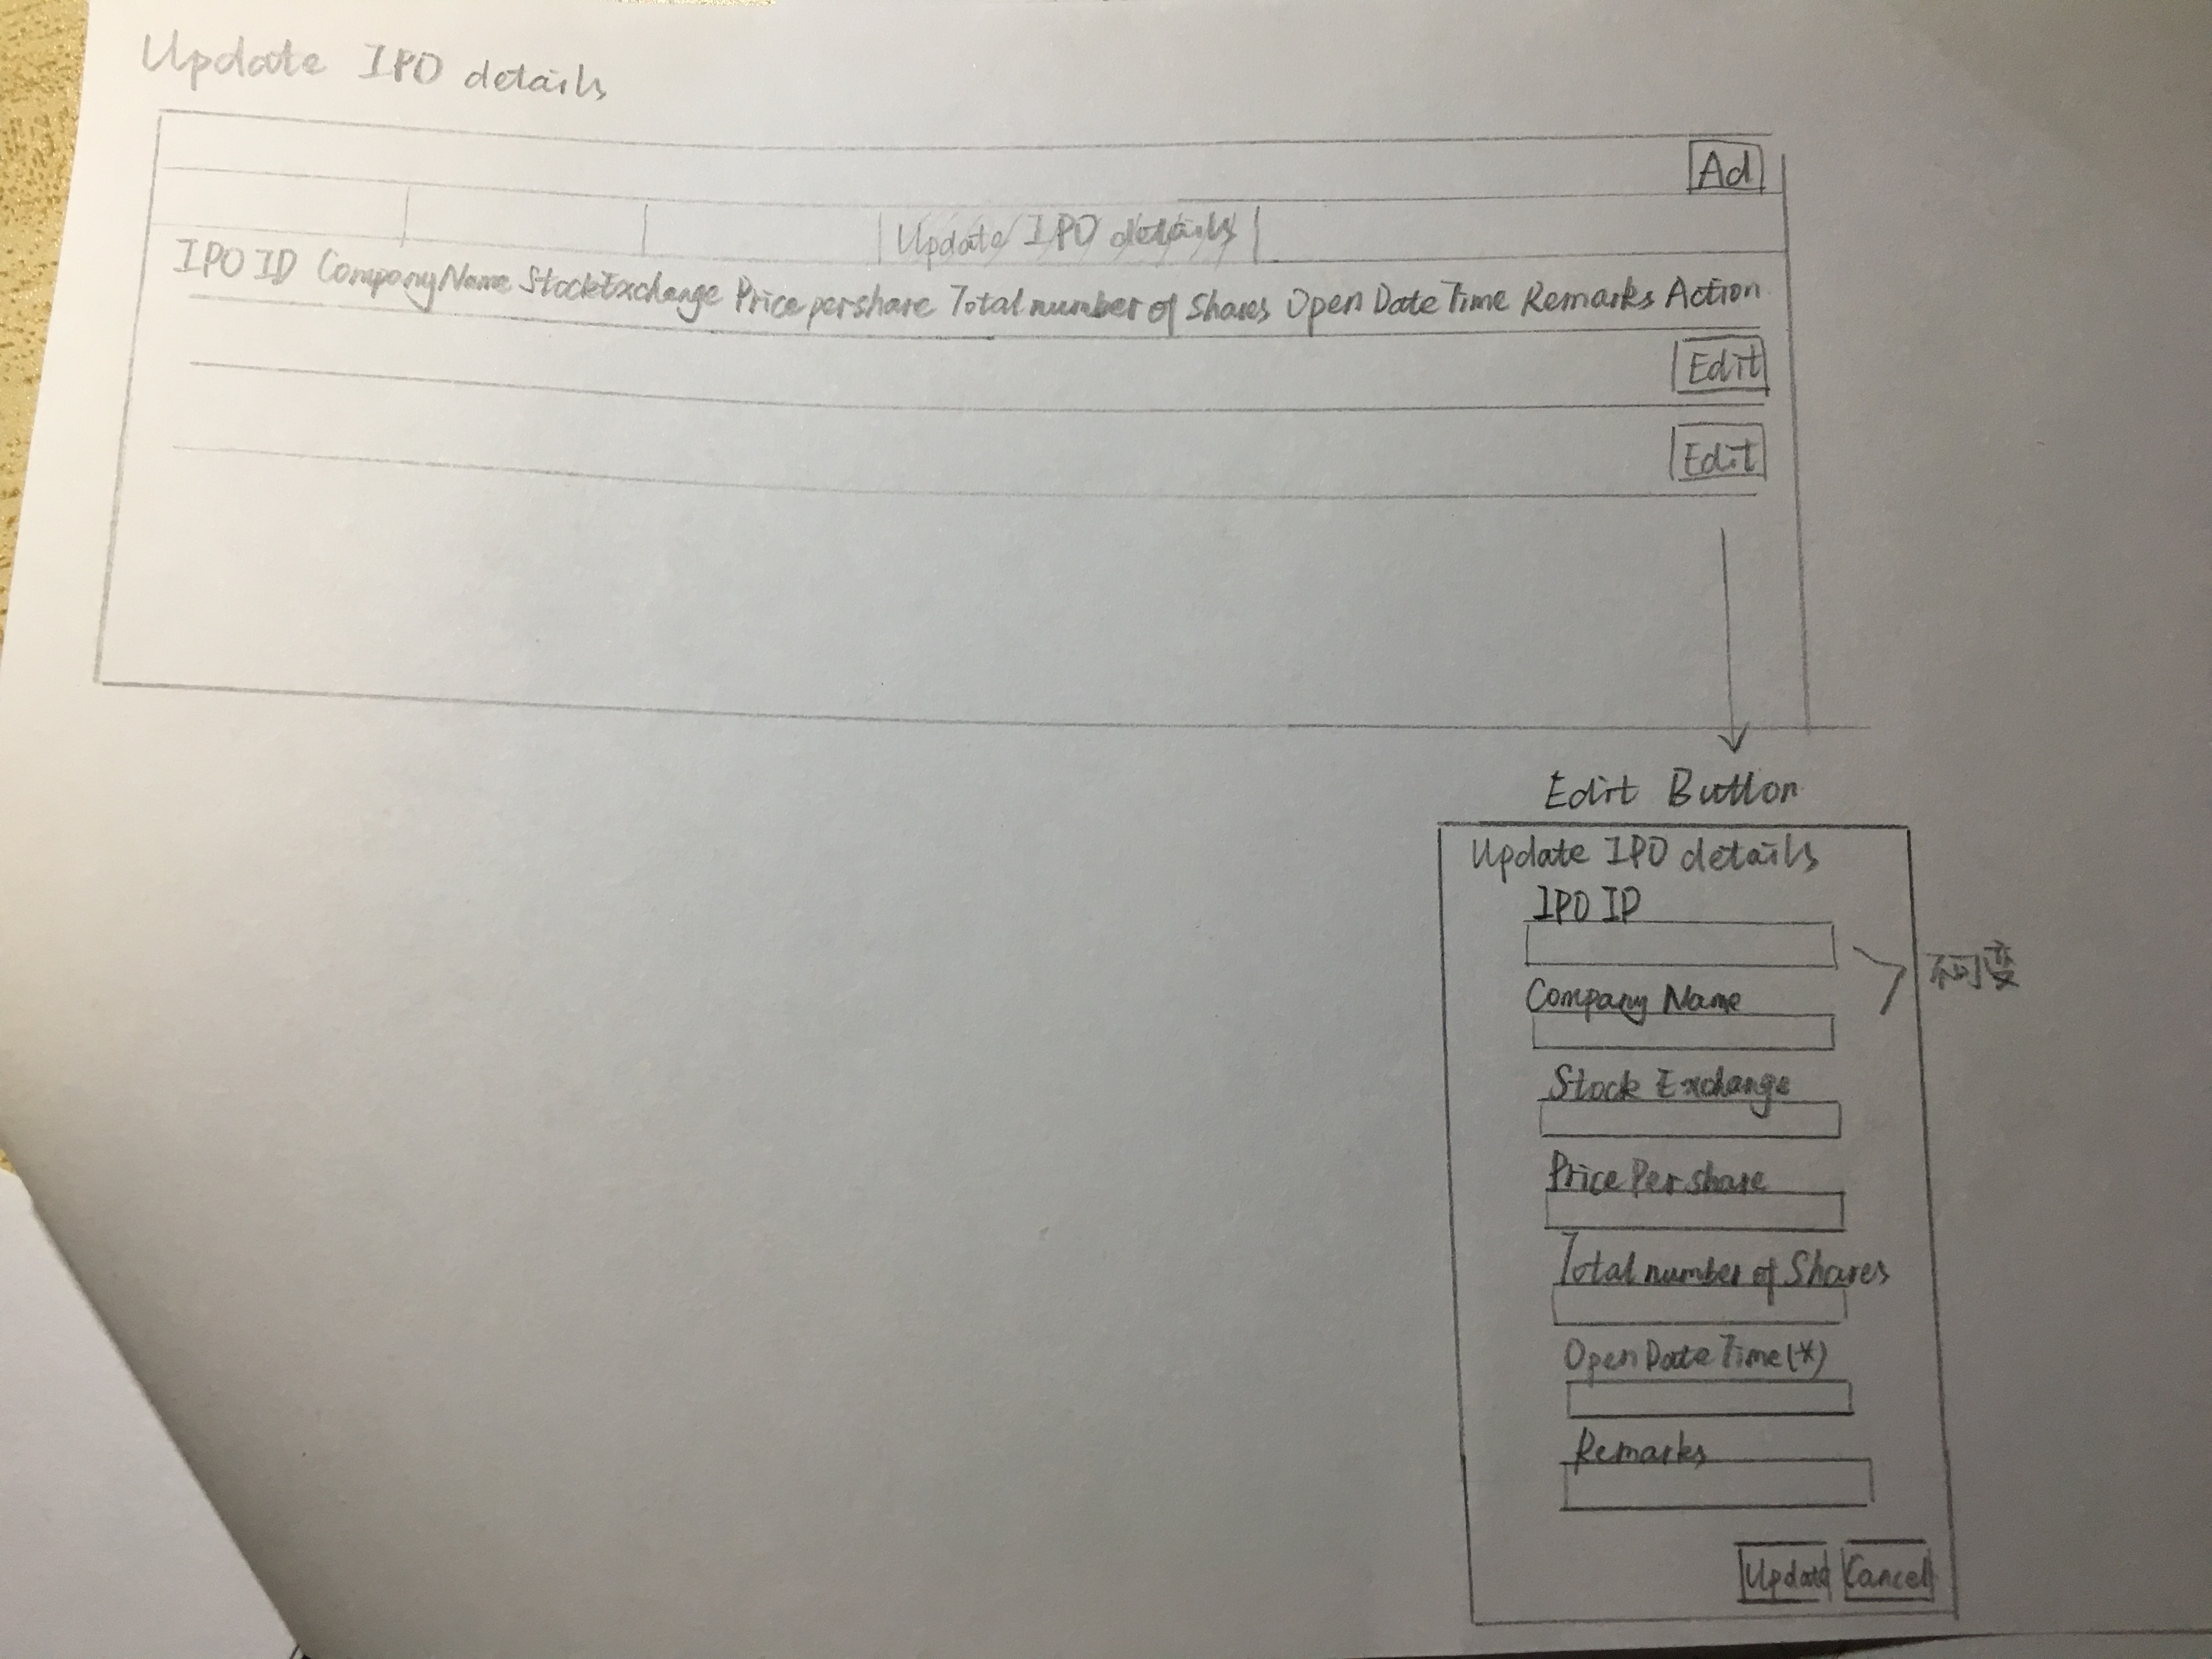 Update IPO details
Ad
Update IPO details
IPO ID CompanyName StockExchange Price pershare Total number of Shares Open Date Time Remarks Action
Edit
Edit
Edit Button
Update IPO details
IPO ID
Company Name
不可变
Stock Exchange
Price Per share
Total number of Shares
Open Date Time (*)
Remarks
Update Cancel